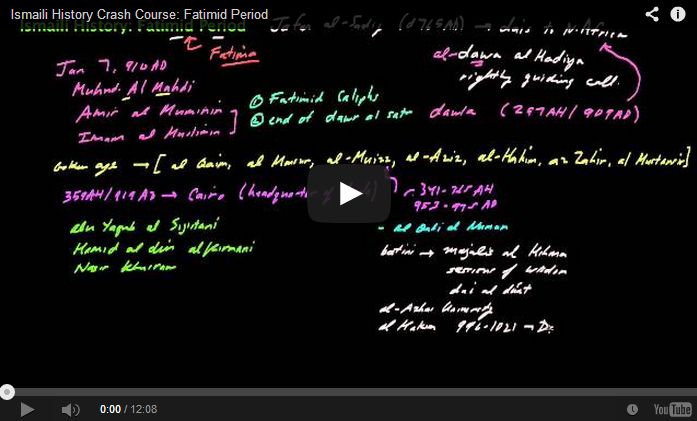 Ismaili History Crash Course: Fatimid Period
Ismaili History: Fatimid Period
Jafar al-Sadiq (d765AD) → dais to N. Africa
Fatima
al-dawa al Hadiya
rightly guiding call.
Jan 7, 910 AD
Muhmd. Al Mahdi
Amir al Muminin
Imam al Muslimin
① Fatimid Caliphs
② end of dawr al satr
dawla (297AH/909AD)
Golden age → [al Qaim, al Mansur, al-Muizz, al-Aziz, al-Hakim, az Zahir, al Mustansir]
359AH/919AD → Cairo (headquarter of
341-365AH
953-975AD
abu Yaqub al Sijistani
Hamid al din al Kirmani
Nasir Khusraw
- al Qadi al Numan
batini → majalis al Hikma
sessions of wisdom
dai al duat
al-Azhar University
al Hakim 996-1021 → D
0:00 / 12:08
YouTube